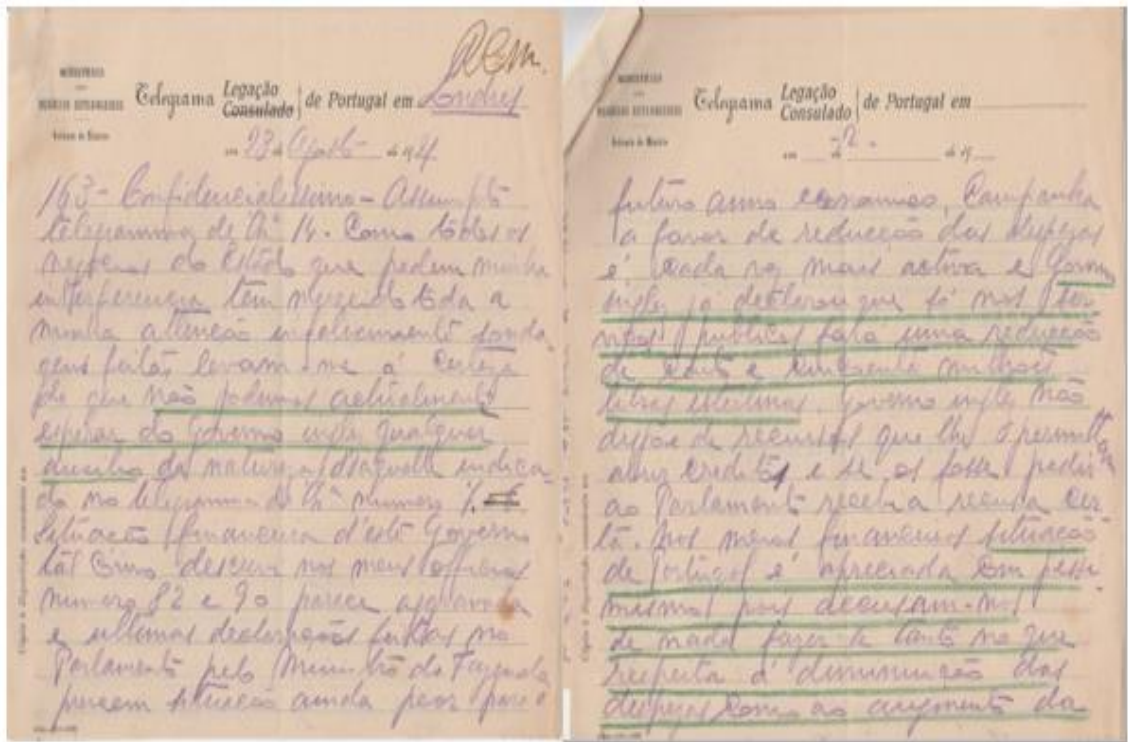 Telegrama Legação Consulado de Portugal em Londres
em 23 de Agosto de 1921
163 - Confidencialissimo - Assumpto
telegramma de V. Como todos os
negocios do Estado que pedem minha
interferencia tem merecido toda a
minha attenção infelizmente sonda
gens feitas levam-me á certeza
de que não podemos actualmente
esperar do Governo inglez qualquer
auxilio da natureza d'aquelle indica
do no telegramma de V. numero
Situação financeira d'este Governo
tal como descrevi nos meus officios
numero 82 e 90 parece aggravada
e ultimas declarações feitas no
Parlamento pelo Ministro da Fazenda
parecem situação ainda peor para o
Telegrama Legação Consulado de Portugal em
em 2º de de 19
futuro anno economico. Campanha
a favor de reducção das despezas
é cada vez mais activa e Governo
inglez já declarou que só nos ser
viços publicos fará uma reducção
de cento e cincoenta milhões
libras esterlinas. Governo inglez não
dispõe de recursos que lhe permittam
abrir creditos e se os fosse pedir
ao Parlamento receberia recusa cer
ta. Nos meios financeiros situação
de Portugal é apreciada com pessi
mismo pois accusam-nos
de nada fazer tanto no que
respeita á diminuição das
despezas como ao augmento da